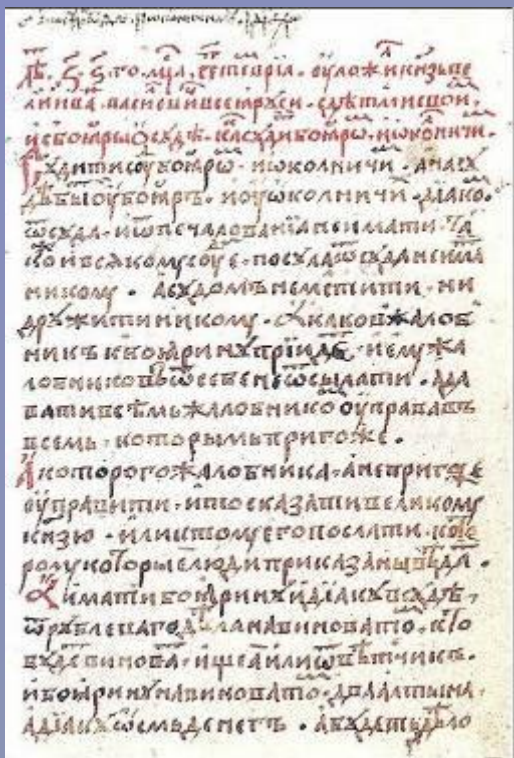 лѣ. ҂ꙅ ꙅ. го. мⷭ҇ца. сѣптевриа. оуложи кнѧзь ве
ликиі ва. василевичь всеꙗ руси. с дѣтми свои
и с боꙗры ѡ судѣ. ка судити боꙗро. и ѡколничи.
Судити су боꙗро. и ѡколничи. а на су
дѣ быти оу боꙗръ. и оу ѡколничи. діако.
ѿ суда. и ѿ печалованіа не имати. та
ко и всѧкому суде. посула ѿ суда не има
никому. а судомъ не мстити. ни
дружити никому. а каков жалоб
никъ к боꙗрину прїидѣ. и ему жа
лобниковъ ѿ себе не ѿсылати. а да
вати всѣмъ жалобнико оуправа въ
всемь. которымь пригоже.
А которого жалобника. а не пригоже
оуправити. и то сказати великому
кнѧзю. или к тому его послати. кото
рому которые люди приказаны вѣда.
А имати боꙗрину и діаку в судѣ,
ѿ рублеваго дѣла на виновато. кто
будѣ винова. ищеа или ѿвѣтчикъ.
и боꙗрину на виновато. два алтына.
а діаку ѡсмь денегъ. а будетъ дѣло